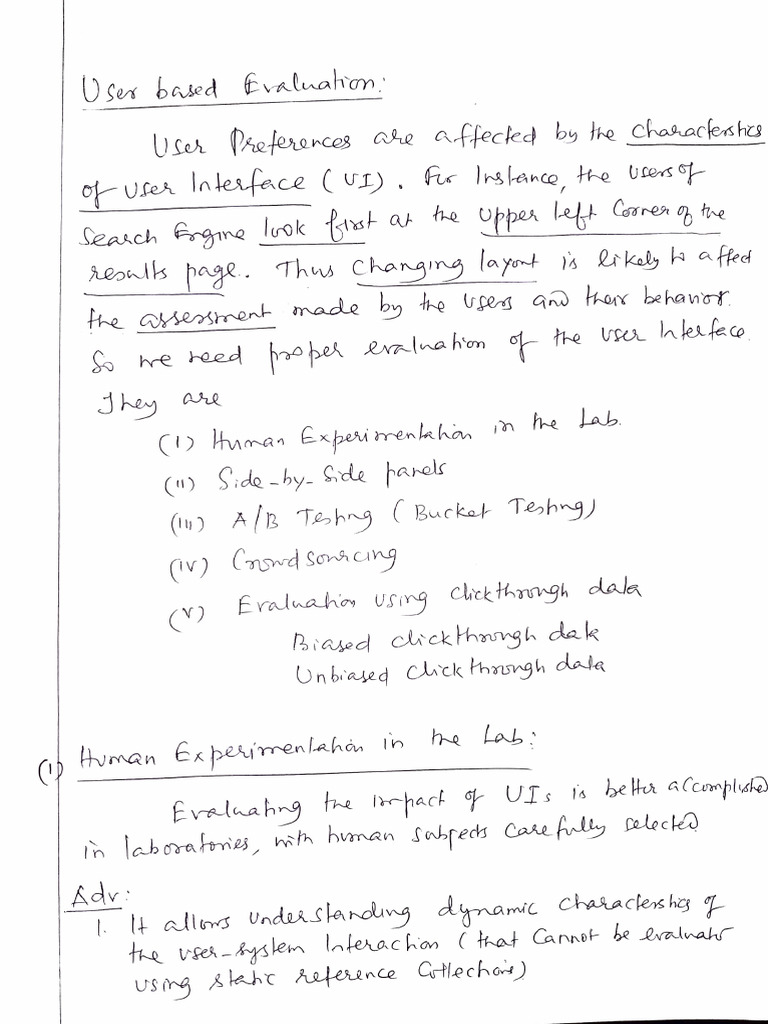 User based Evaluation:
User Preferences are affected by the characteristics
of user Interface (UI). For Instance, the users of
search Engine look first at the upper left corner of the
results page. Thus changing layout is likely to affect
the assessment made by the users and their behavior.
So we need proper evaluation of the user Interface.
They are
(i) Human Experimentation in the Lab.
(ii) Side-by-side panels
(iii) A/B Testing (Bucket Testing)
(iv) Crowdsourcing
(v) Evaluation using clickthrough data
Biased clickthrough data
Unbiased clickthrough data
(1) Human Experimentation in the Lab:
Evaluating the impact of UIs is better accomplished
in laboratories, with human subjects carefully selected
Adv:
1. It allows understanding dynamic characteristics of
the user-system Interaction (that cannot be evaluated
using static reference Collections)